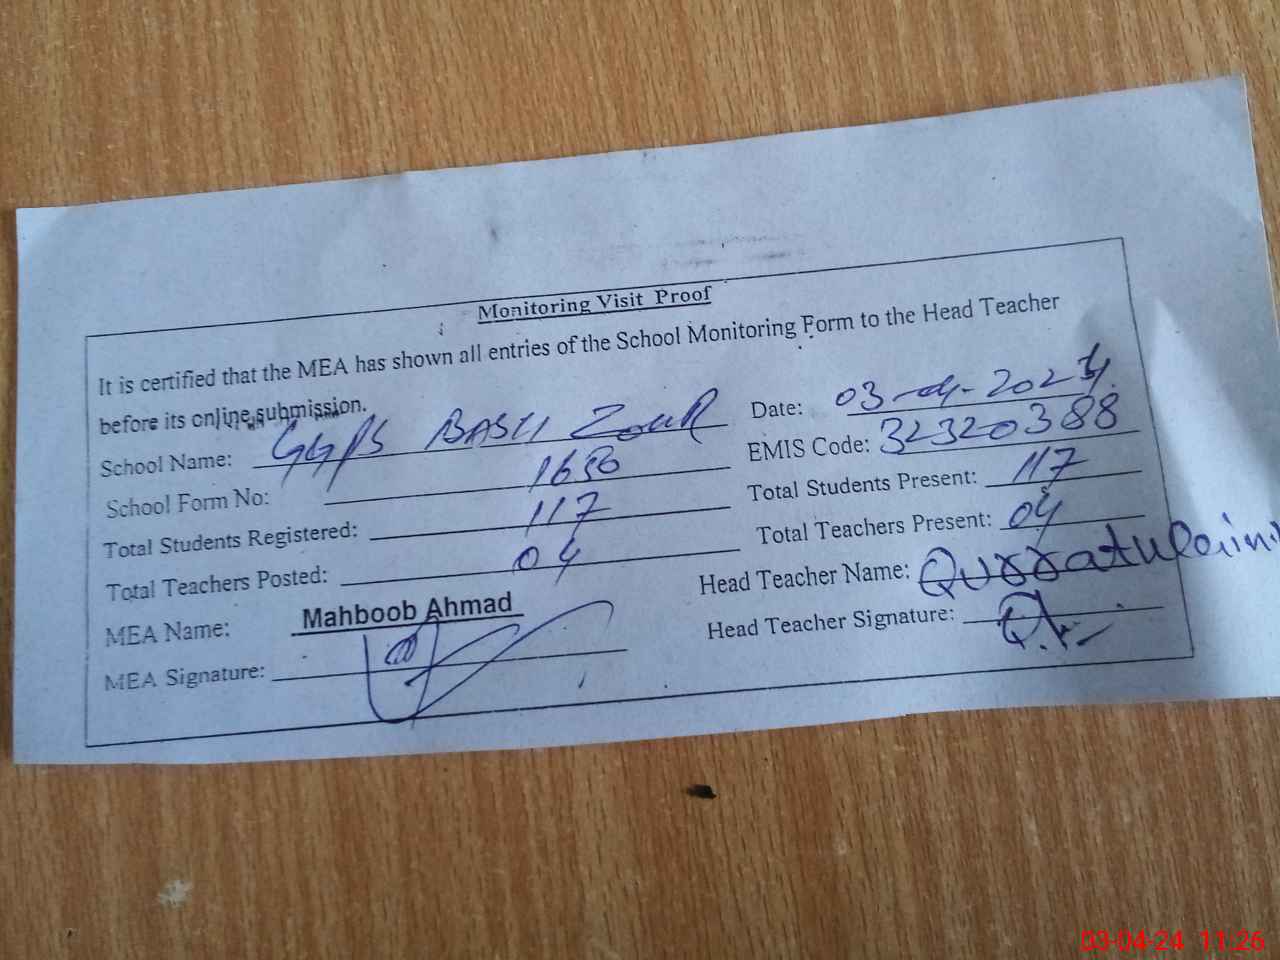 Monitoring Visit Proof
It is certified that the MEA has shown all entries of the School Monitoring Form to the Head Teacher
before its online submission.
Date: 03-04-2024
School Name: GGPS BASTI ZOUR
EMIS Code: 32320388
School Form No: 1650
Total Students Present: 117
Total Students Registered: 117
Total Teachers Present: 04
Total Teachers Posted: 04
Head Teacher Name: Qurratulain
MEA Name: Mahboob Ahmad
Head Teacher Signature:
MEA Signature:
03-04-24 11:26